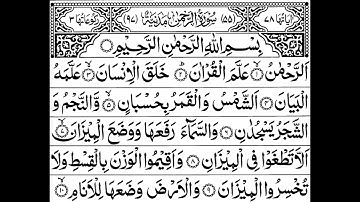 اٰيَاتُهَا ٧٨ (٥٥) سُوْرَةُ الرَّحْمٰنِ مَدَنِيَّةٌ (٩٧) رُكُوْعَاتُهَا ٣
بِسْمِ اللّٰهِ الرَّحْمٰنِ الرَّحِيْمِ
اَلرَّحْمٰنُ ۙ١ عَلَّمَ الْقُرْاٰنَ ؕ٢ خَلَقَ الْاِنْسَانَ ۙ٣ عَلَّمَهُ
الْبَيَانَ ٤ اَلشَّمْسُ وَالْقَمَرُ بِحُسْبَانٍ ۪٥ وَّالنَّجْمُ وَ
الشَّجَرُ يَسْجُدٰنِ ٦ وَالسَّمَآءَ رَفَعَهَا وَوَضَعَ الْمِيْزَانَ ۙ٧
اَلَّا تَطْغَوْا فِي الْمِيْزَانِ ٨ وَاَقِيْمُوا الْوَزْنَ بِالْقِسْطِ وَلَا
تُخْسِرُوا الْمِيْزَانَ ٩ وَالْاَرْضَ وَضَعَهَا لِلْاَنَامِ ۙ١٠